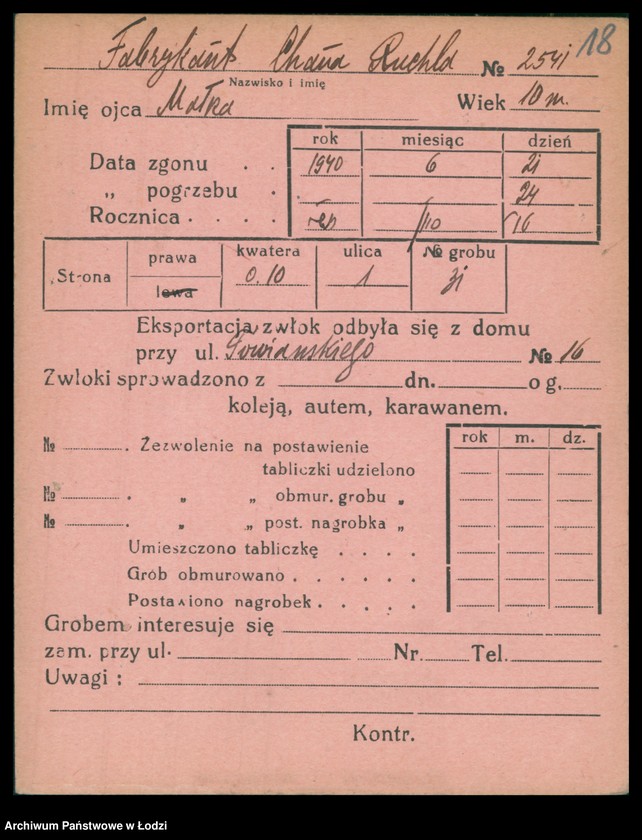 18
Fabrykant Chana Ruchla № 2541
Nazwisko i imię
Imię ojca Matka Wiek 10 m.
rok miesiąc dzień
Data zgonu . . 1940 6 21
„ pogrzebu . . 24
Rocznica . . . . /10 16
Strona prawa lewa kwatera ulica № grobu
0.10 1 31
Eksportacja zwłok odbyła się z domu
przy ul. Gowianskiego № 16
Zwłoki sprowadzono z dn. o g.
koleją, autem, karawanem.
rok m. dz.
№ . Zezwolenie na postawienie
tabliczki udzielono
№ . „ „ obmur. grobu „
№ . „ „ post. nagrobka „
Umieszczono tabliczkę . . . .
Grób obmurowano . . . . .
Postawiono nagrobek . . . . .
Grobem interesuje się
zam. przy ul. Nr. Tel.
Uwagi :
Kontr.
Archiwum Państwowe w Łodzi